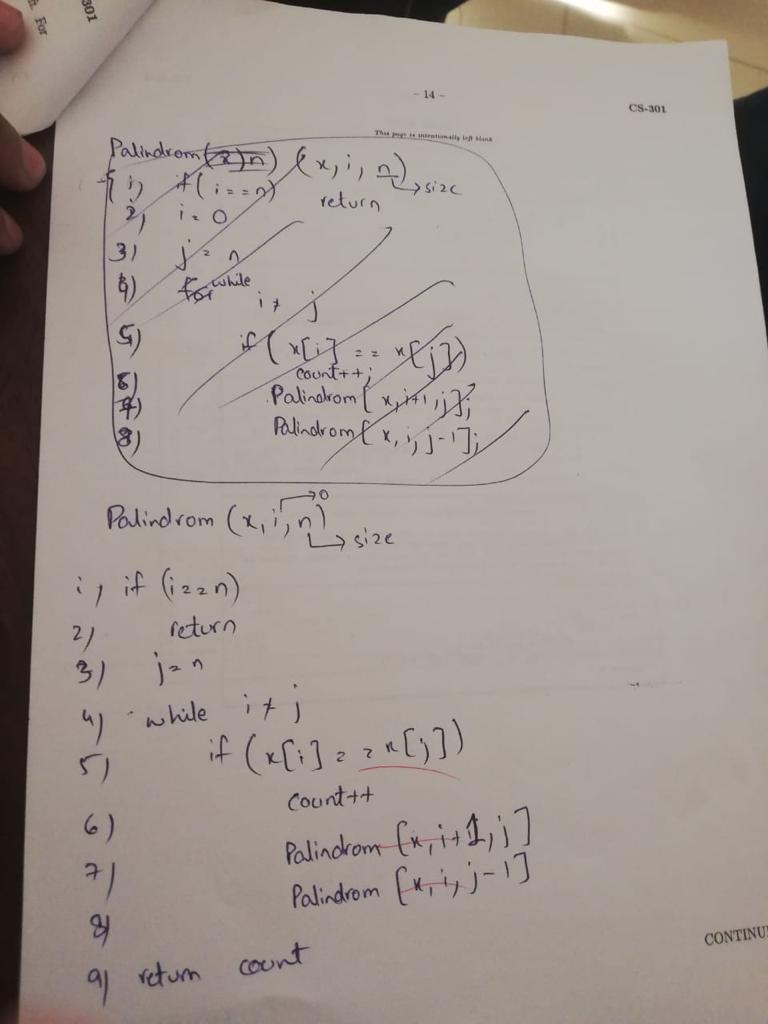 301
ft. For
- 14 -
CS-301
This page is intentionally left blank
Palindrom (x, i, n)
size
1) if (i == n)
return
2) i = 0
3) j = n
4) while
i ≠ j
5) if ( x[i] == x[j])
6) count++;
7) Palindrom [ x, i+1, j];
8) Palindrom [ x, i, j-1];
0
Palindrom (x, i, n)
size
1) if (i==n)
2) return
3) j = n
4) while i ≠ j
5) if (x[i] == x[j])
count++
6) Palindrom [x, i+1, j]
7) Palindrom [x, i, j-1]
8)
9) return count
CONTINU